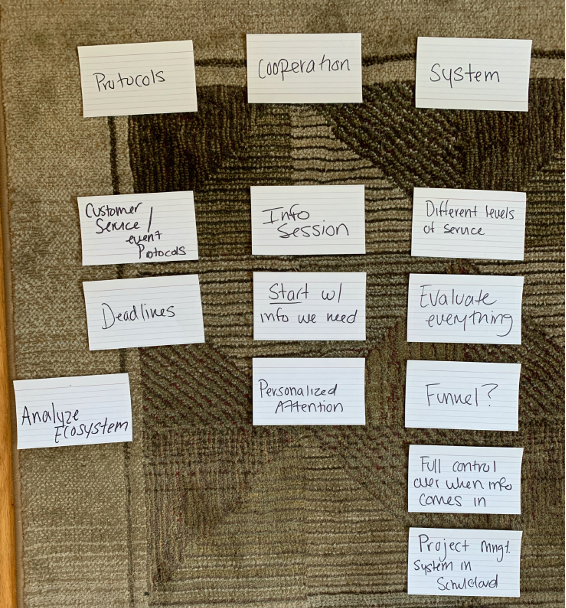 Protocols
Cooperation
System
Customer
Service /
event
Protocols
Info
Session
Different levels
of service
Deadlines
Start w/
info we need
Evaluate
everything
Analyze
Ecosystem
Personalized
Attention
Funnel?
Full control
over when info
comes in
Project mngt.
system in